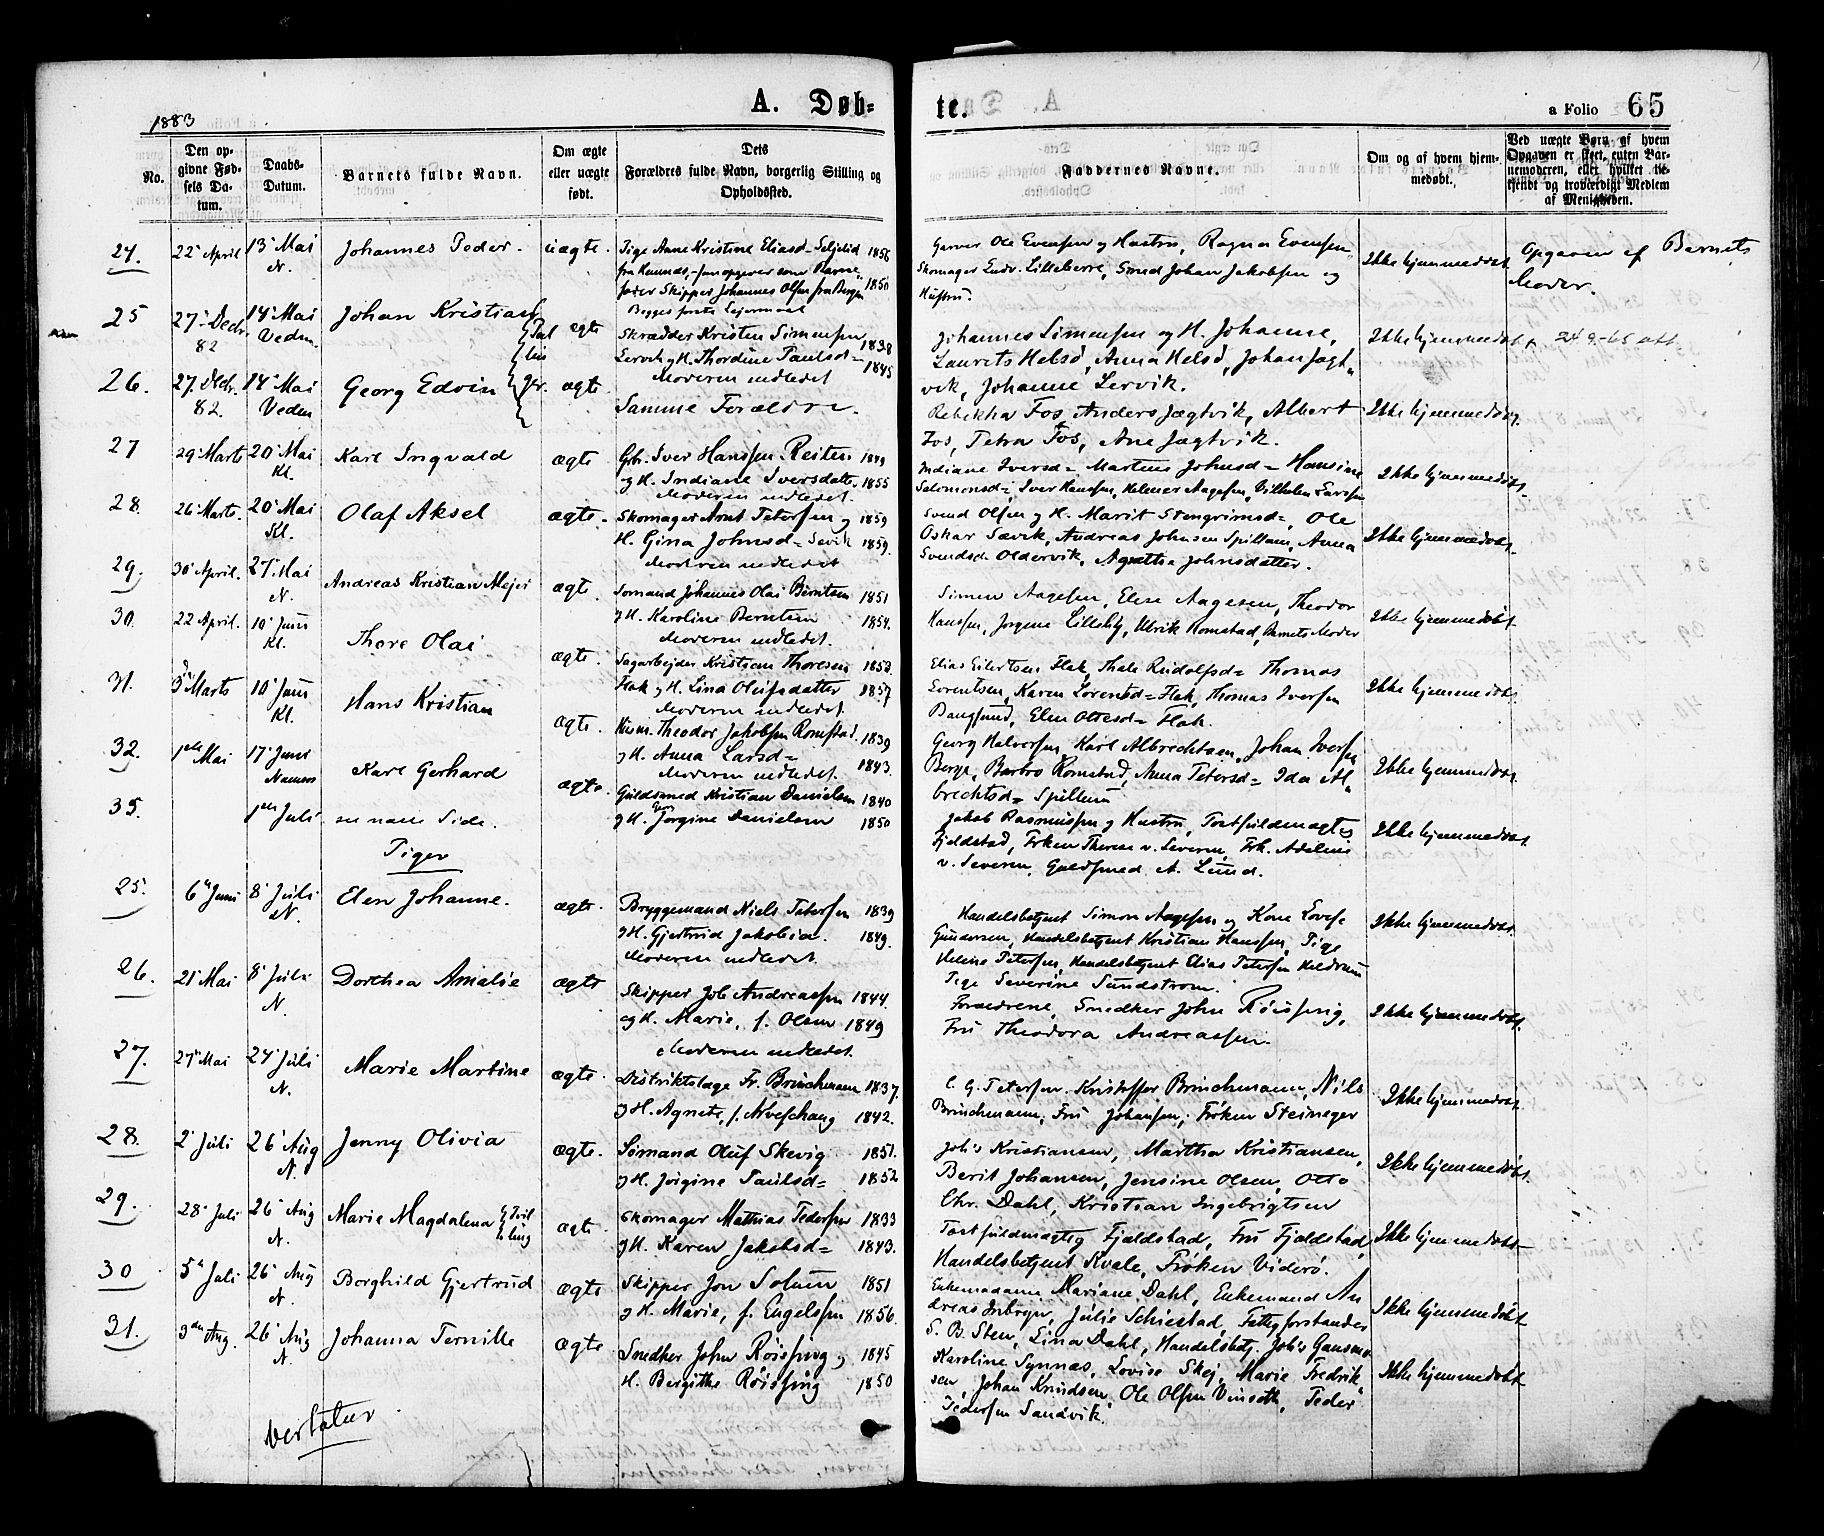 1883
A. Døb=
te.
a Folio 65
No.
Den op-
givne Fød-
sels Da-
tum.
Daabs-
Datum.
Barnets fulde Navn.
Om ægte
eller uægte
født.
Dets
Forældres fulde Navn, borgerlig Stilling og
Opholdssted.
Faddernes Navne.
Om og af hvem hjem-
medøbt.
Ved uægte Børn af hvem
Opgaven er skeet, enten Bar-
nemoderen, eller hvilket be-
kjendt og troværdigt Medlem
af Menigheden.
24. 22 April 13 Mai N. Johannes Peder. uægte. Pige Anne Kristine Eliasd= 1856
fader Skipper Johannes Olsen fra Bergen 1850
Begges første Leiermaal
Garver Ole Evensen og Hustru, Ragna Evensen,
Skomager Lillebærre, Smed Johan Jakobsen og
Hustru.
Ikke hjemmedøbt. Opgaven af Barnets
Moder.
25 27 Decbr. 82 14 Mai Vedm. Johan Kristian ægte Skrædder Kristen Simensen 1838
Lervik og H. Thordine Paulsd= 1845
Moderen indledet
Johannes Simensen og H. Johanne,
Laurits Helsø, Anna Helsø, Johan Jægt=
vik, Johanne Lervik.
Ikke hjemmedøbt 24 9.-65 att.
26. 27. Decbr. 82. 14 Mai Vedm Georg Edvin ægte Samme Forældre.
Rebekka Fos, Anders Jægtvik, Albert
Fos, Petra Fos, Ane Jægtvik.
Ikke hjemmedøbt.
27 29 Marts 20 Mai Kl. Karl Ingvald ægte Gbr. Iver Hanssen Reiten 1849
og H. Indiane Iversdatter 1855
Moderen indledet.
Indiane Iversd= Martine Johnsd= Hansine
Salomonsd=, Iver Hanssen, Helmer Aagesen, Vilhelm Larssen
Ikke hjemmedøbt.
28. 26 Marts. 20 Mai Kl. Olaf Aksel ægte. Skomager Arnt Petersen og 1859
H. Gina Johnsd= Sævik 1859.
Moderen indledet
Svend Olsen og H. Marit Stengrimsd=, Ole
Oskar Sævik, Andreas Johnsen Spillum, Anna
Svendsd. Oldervik, Agathe Johnsdatter.
Ikke hjemmedøbt.
29. 30 April. 27 Mai N. Andreas Kristian Mejer ægte. Sømand Johannes Olai Berntsen 1851
og H. Karoline Berntsen 1854.
Moderen indledet.
Simon Aagesen, Elise Aagesen, Theodor
Hanssen, Jørgine Lilleby, Ulrik Romstad, Barnets Moder
Ikke hjemmedøbt.
30. 22 April. 10 Juni Kl. Thore Olai ægte. Sagarbejder Kristian Thoresen 1858.
Flak og H. Lina Olufsdatter 1857
Moderen indledet.
Elias Eilertsen Flak, Thale Rudolfsd= Thomas
Lorentsen, Karen Lorentsd= Flak, Thomas Iversen
Bangsund, Elen Ottesd= Flak.
Ikke hjemmedøbt.
31. 3 Marts 10 Juni Kl. Hans Kristian ægte. Theodor Jakobsen Romstad. 1839
og H. Anna Larsd= 1843.
Moderen indledet.
Georg Halvorsen, Karl Albrechtsen, Johan Iversen
Berge, Barbro Romstad, Anna Petersd= Ida Al=
brechtsd= Spillum
Ikke hjemmedøbt.
32. 1ste Mai 17 Juni Namsos Karl Gerhard ægte. Guldsmed Kristian Danielsen 1840
og H. Jørgine Danielsen 1850
Jakob Rasmussen og Hustru, Postfuldmægtig
Fjeldstad, Frøken Therese v. Severin, Frk. Adeline
v. Severin, Guldsmed A. Lund.
Ikke hjemmedøbt.
35. 1ste Juli se næste Side.
Piger
25. 6 Juni 8 Juli N. Elen Johanne. ægte. Bryggemand Niels Petersen 1839
og H. Gjertrud Jakobia. 1849.
Moderen indledet.
Handelsbetjent Simon Aagesen og Kone Lovise
Gundersen, Handelsbetjent Kristian Hanssen, Pige
Helene Petersen, Handelsbetjent Elias Petersen
Pige Severine Sundstrøm.
Ikke hjemmedøbt.
26. 21 Mai 8 Juli N. Dorthea Amalie ægte Skipper Joh Andreassen 1844
og H. Marie, f. Olsen 1849
Moderen indledet.
Forældrene, Snedker John Røissing,
Fru Theodora Andreassen.
Ikke hjemmedøbt.
27. 27 Mai 24 Juli N. Marie Martine ægte. Distriktslæge Fr. Brinchmann 1837.
og H. Agnete, f. 1842.
C. G. Petersen. Kristoffer Brinchmann, Nils
Brinchmann, Fru Johansen, Frøken Steineger
Ikke hjemmedøbt.
28. 2 Juli 26 Aug N. Jenny Olivia ægte. Sømand Oluf Skevig 1851.
og H. Jørgine Paulsd= 1852
Joh's Kristiansen, Martha Kristiansen,
Berit Johansen, Jensine Olsen, Otto
Chr. Dahl, Kristian Ingebrigtsen
Ikke hjemmedøbt.
29. 28 Juli 26 Aug N. Marie Magdalena Tvilling ægte Skomager Mathias Pedersen 1833
og H. Karen Jakobsd= 1843.
Postfuldmægtig Fjeldstad, Fru Fjeldstad
Handelsbetjent Kvale, Frøken Viderø.
Ikke hjemmedøbt
30 5 Juli 26 Aug N. Borghild Gjertrud ægte Skipper Jon Solum 1851
og H. Marie, f. Engelssen 1856.
Enkemadame Mariane Dahl, Enkemand An
dreas Julie Schiestad, Fattigforstander
S. B. Sten, Lina Dahl, Handelsbetj. Joh's
Ikke hjemmedøbt
31. 3die Aug. 26 Aug N. Johanna Pernille ægte. Snedker John Røissing og 1845
H. Bergithe Røissing 1850
Karoline Synnæs, Lovise Skej, Marie Fredrik=
sen, Johan Knudsen, Ole Olsen Peder
Pedersen Sandvik.
Ikke hjemmedøbt
Vertatur